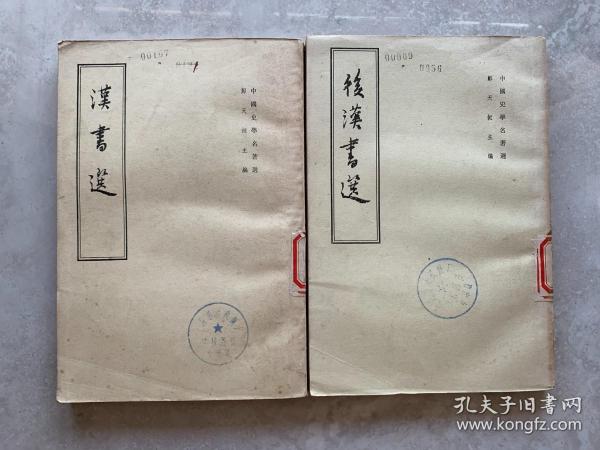 00167
漢書選
中國史學名著選
鄭天挺主編
00009
0056
後漢書選
中國史學名著選
鄭天挺主編
孔夫子旧书网
www.kongfz.com